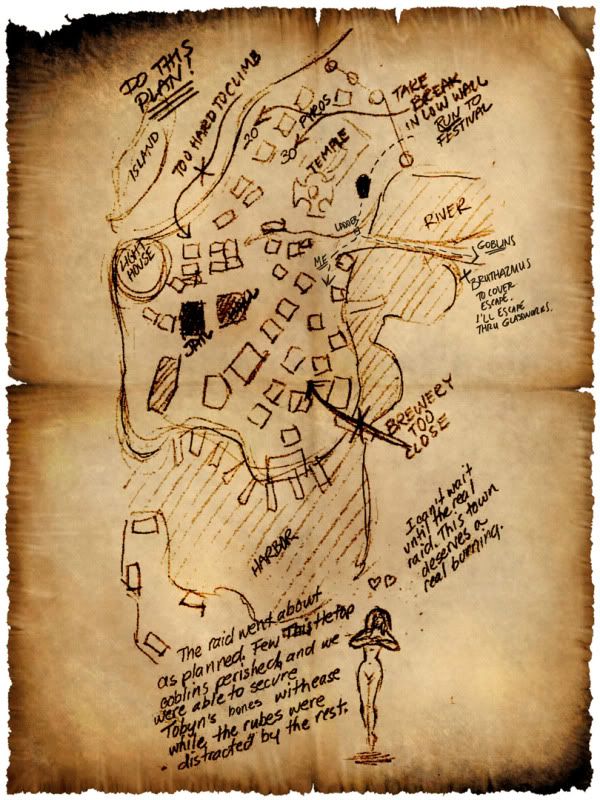 DO THIS
PLAN!
TOO HARD TO CLIMB
ISLAND
20
PYROS
30
TEMPLE
TAKE
BREAK
IN LOW WALL
RUN TO
FESTIVAL
RIVER
LADDER
ME
GOBLINS
BRUTHAZMUS
TO COVER
ESCAPE.
I'LL ESCAPE
THRU GLASSWORKS.
LIGHT
HOUSE
JAIL
BREWERY
TOO
CLOSE
HARBOR
I can't wait
until the real
raid. This town
deserves a
real burning.
The raid went about
as planned. Few Thistletop
goblins perished, and we
were able to secure
Tobyn's bones with ease
while the rubes were
distracted by the rest.